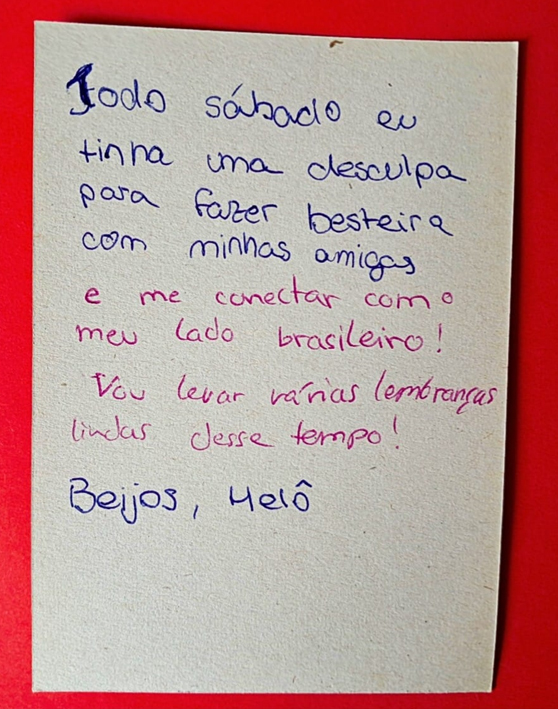 Todo sábado eu
tinha uma desculpa
para fazer besteira
com minhas amigas
e me conectar com o
meu lado brasileiro!
Vou levar várias lembranças
lindas desse tempo!
Beijos, Helô